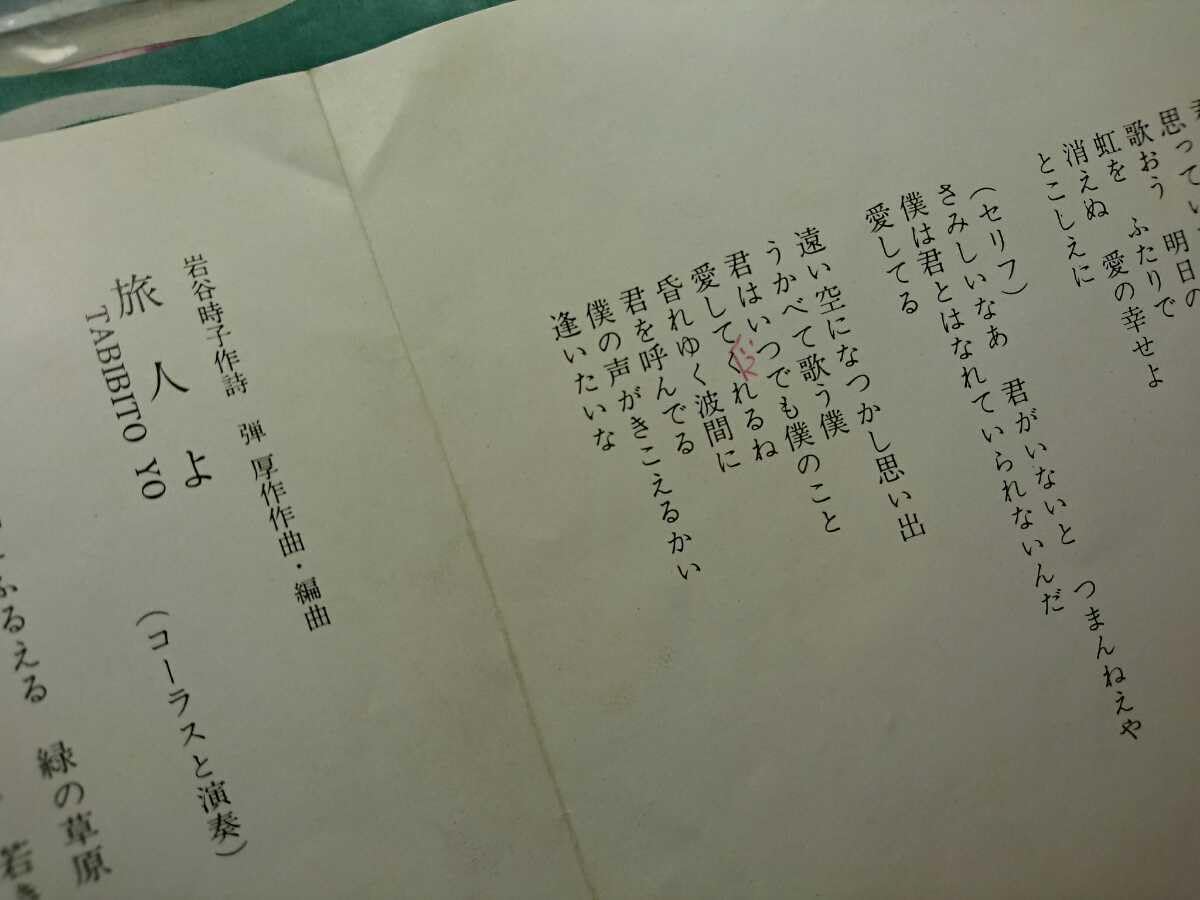 思ってい
歌おう　明日の
虹を　ふたりで
消えぬ　愛の幸せよ
とこしえに
（セリフ）
さみしいなあ　君がいないと　つまんねえや
僕は君とはなれていられないんだ
愛してる
遠い空になつかし思い出
うかべて歌う僕
君はいつでも僕のこと
愛してくれるね
昏れゆく波間に
君を呼んでる
僕の声がきこえるかい
逢いたいな
岩谷時子作詩　弾　厚作作曲・編曲
旅人よ　（コーラスと演奏）
TABIBITO YO
ふるえる　緑の草原
若き